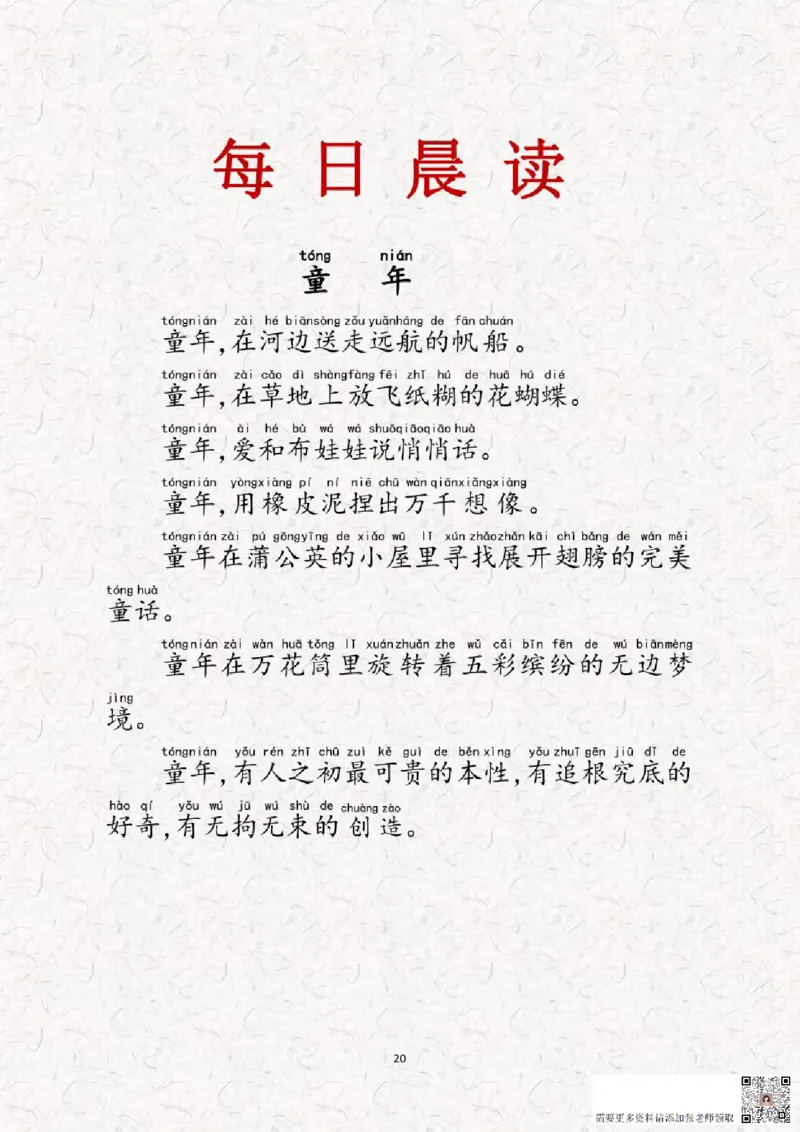 每日晨读
tóng nián
童 年
tóngnián zài hé biānsòng zǒu yuǎnháng de fān chuán
童年,在河边送走远航的帆船。
tóngnián zài cǎo dì shàngfàng fēi zhǐ hú de huā hú dié
童年,在草地上放飞纸糊的花蝴蝶。
tóngnián ài hé bù wá wá shuōqiāoqiāo huà
童年,爱和布娃娃说悄悄话。
tóngnián yòngxiàng pí ní niē chū wàn qiānxiǎngxiàng
童年,用橡皮泥捏出万千想像。
tóngnián zài pú gōngyīng de xiǎo wū lǐ xún zhǎozhǎn kāi chì bǎng de wán měi
童年在蒲公英的小屋里寻找展开翅膀的完美
tóng huà
童话。
tóngnián zài wàn huā tǒng lǐ xuánzhuǎn zhe wǔ cǎi bīn fēn de wú biānmèng
童年在万花筒里旋转着五彩缤纷的无边梦
jìng
境。
tóngnián yǒu rén zhī chū zuì kě guì de běn xìng yǒu zhuī gēn jiū dǐ de
童年,有人之初最可贵的本性,有追根究底的
hào qí yǒu wú jū wú shù de chuàng zào
好奇,有无拘无束的创造。
20
需要更多资料请添加张老师领取